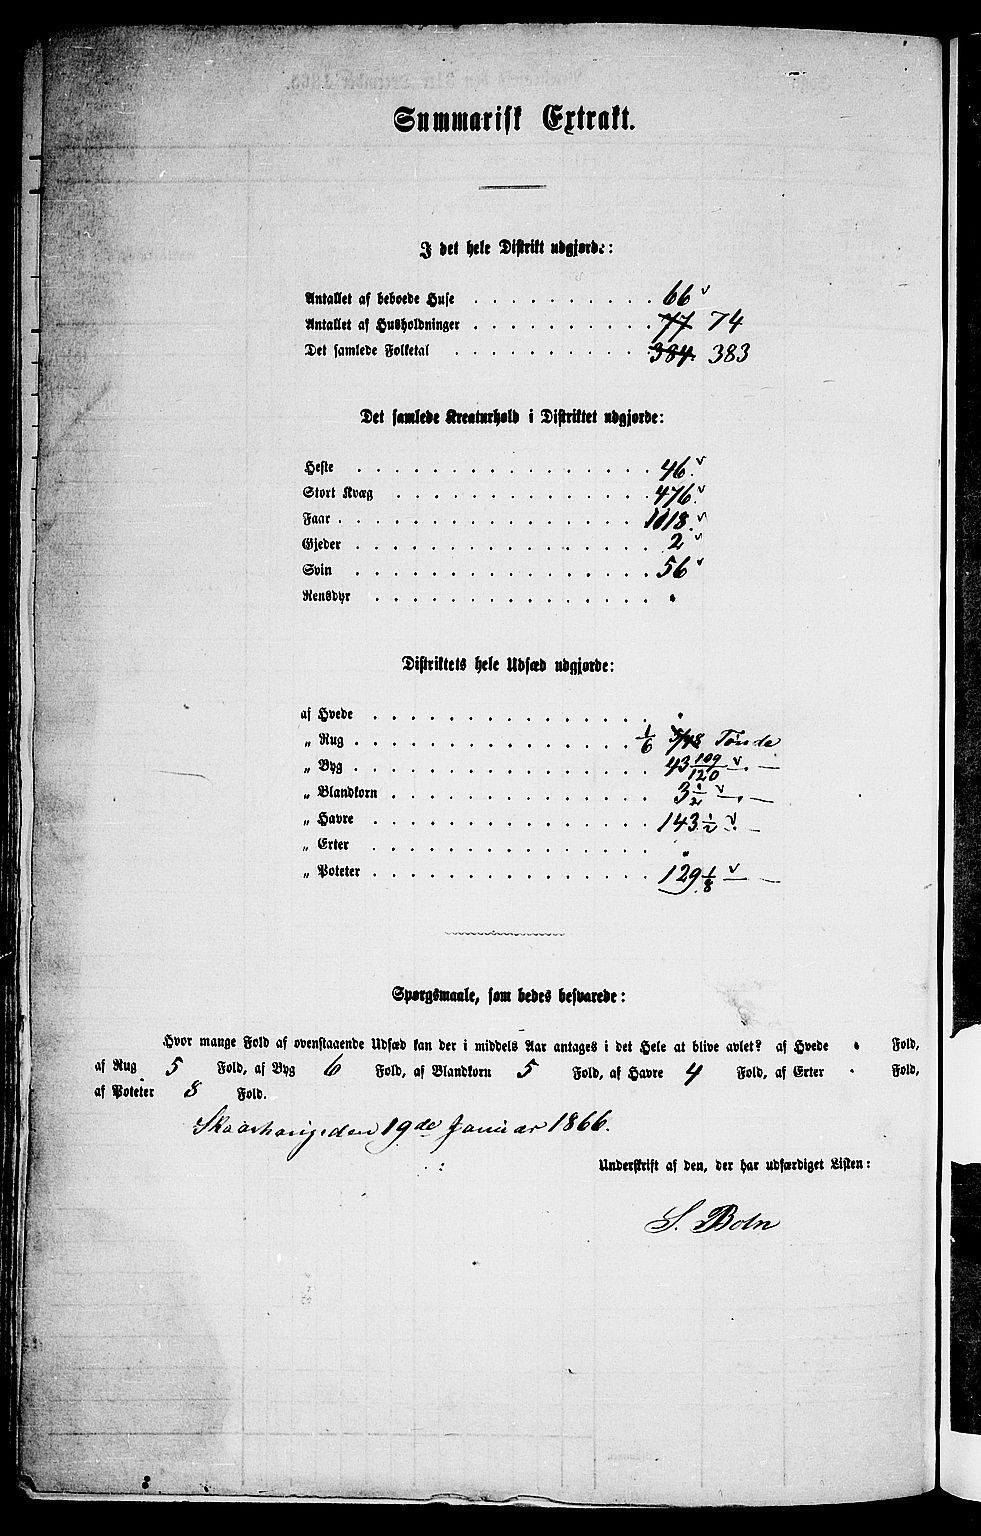 Summarisk Extrakt.
I det hele Distrikt udgjorde:
Antallet af beboede Huse . . . . . . . . . . 66 v
Antallet af Husholdninger . . . . . . . . . . 77 74
Det samlede Folketal . . . . . . . . . . . 384. 383
Det samlede Kreaturhold i Distriktet udgjorde:
Heste . . . . . . . . . . . . . . . 46. v
Stort Kvæg . . . . . . . . . . . . . 476. v
Faar . . . . . . . . . . . . . . . . 1018. v
Gjeder . . . . . . . . . . . . . . . 2 v
Svin . . . . . . . . . . . . . . . . 56 v
Rensdyr . . . . . . . . . . . . . . .
Distriktets hele Udsæd udgjorde:
af Hvede . . . . . . . . . . . . . .
„ Rug . . . . . . . . . . . . . . . 1/6 5/48 Tønde
„ Byg . . . . . . . . . . . . . . . 43 109/120 v — . —
„ Blandkorn . . . . . . . . . . . . . 3 1/2 v — . —
„ Havre . . . . . . . . . . . . . . 143 1/2 v . —
„ Erter . . . . . . . . . . . . . .
„ Poteter . . . . . . . . . . . . . . 129 1/8 v — —
Spørgsmaale, som bedes besvarede:
Hvor mange Fold af ovenstaaende Udsæd kan der i middels Aar antages i det Hele at blive avlet? af Hvede Fold,
af Rug 5 Fold, af Byg 6 Fold, af Blandkorn 5 Fold, af Havre 4 Fold, af Erter Fold,
af Poteter 8 Fold.
den 19de Januar 1866.
Underskrift af den, der har udfærdiget Listen:
S. Boln